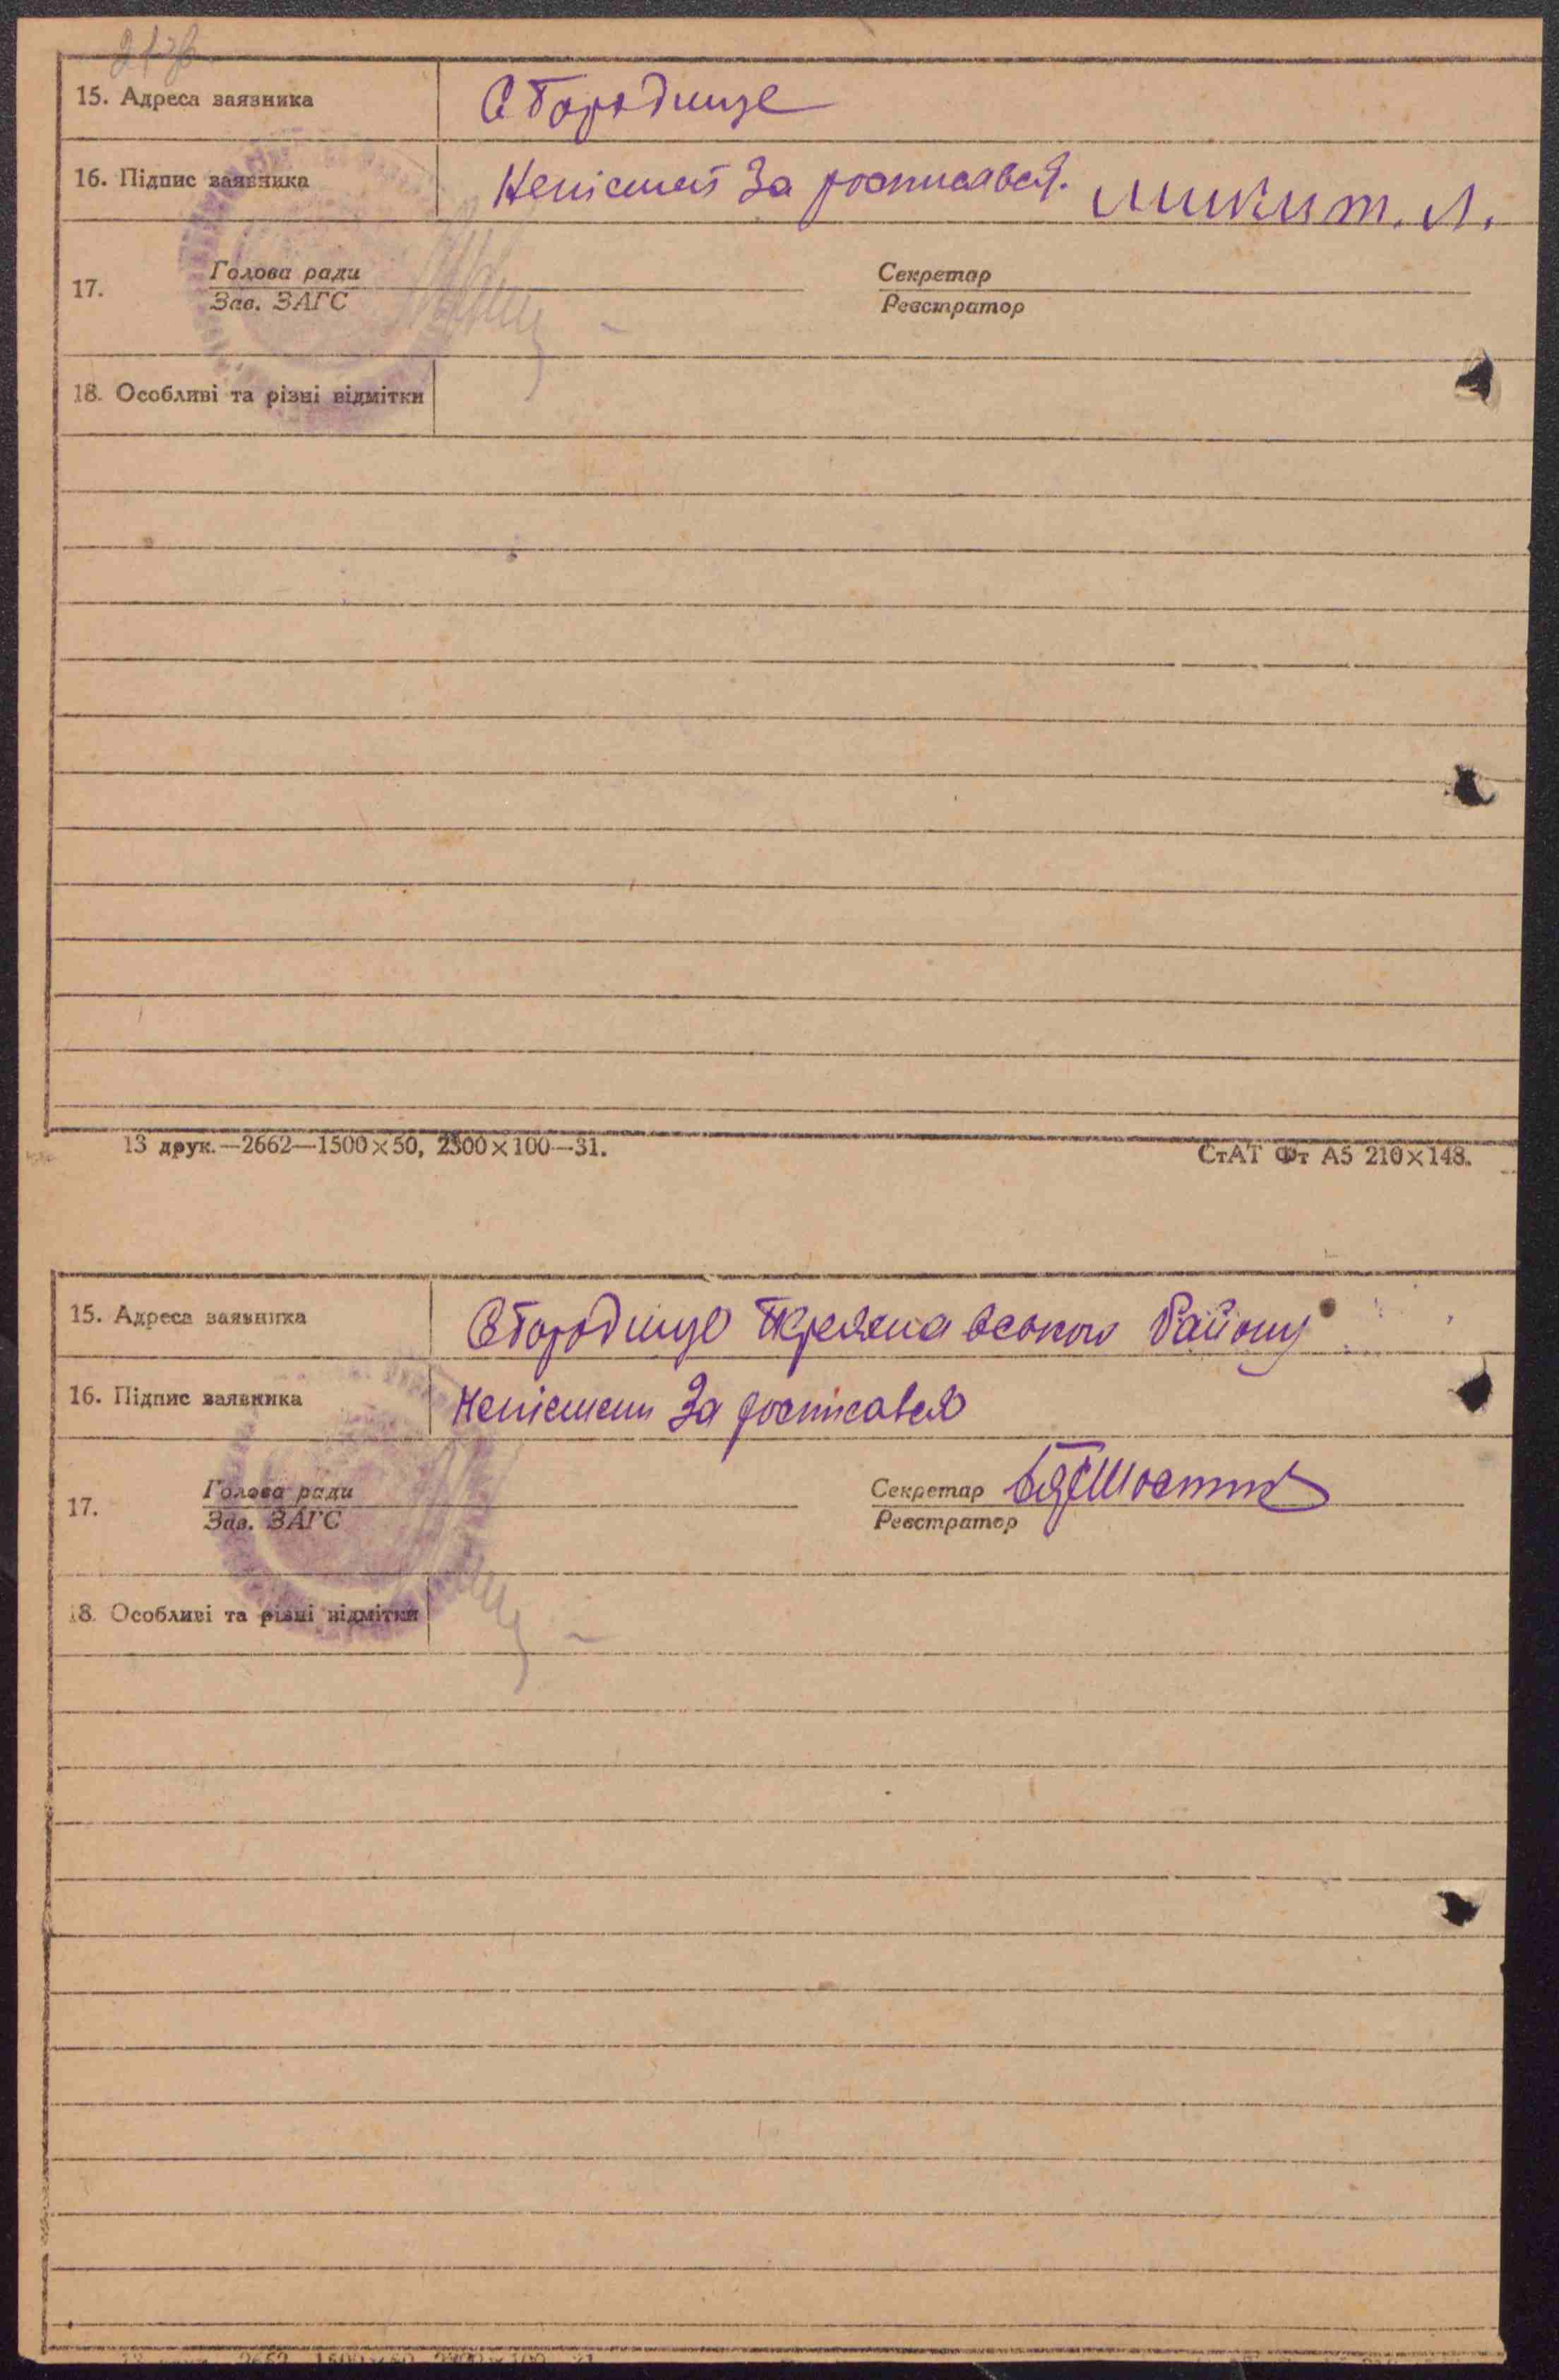 15. Адреса заявника С Городище
16. Підпис заявника Неписмен За росписався. Микит. Л.
17. Голова ради Секретар
Зав. ЗАГС Реєстратор
18. Особливі та різні відмітки
13 друк.—2662—1500×50, 2300×100—31.
СтАТ Фт А5 210×148.
15. Адреса заявника С Городище Району
16. Підпис заявника За росписався
17. Голова ради Секретар
Зав. ЗАГС Реєстратор
18. Особливі та різні відмітки